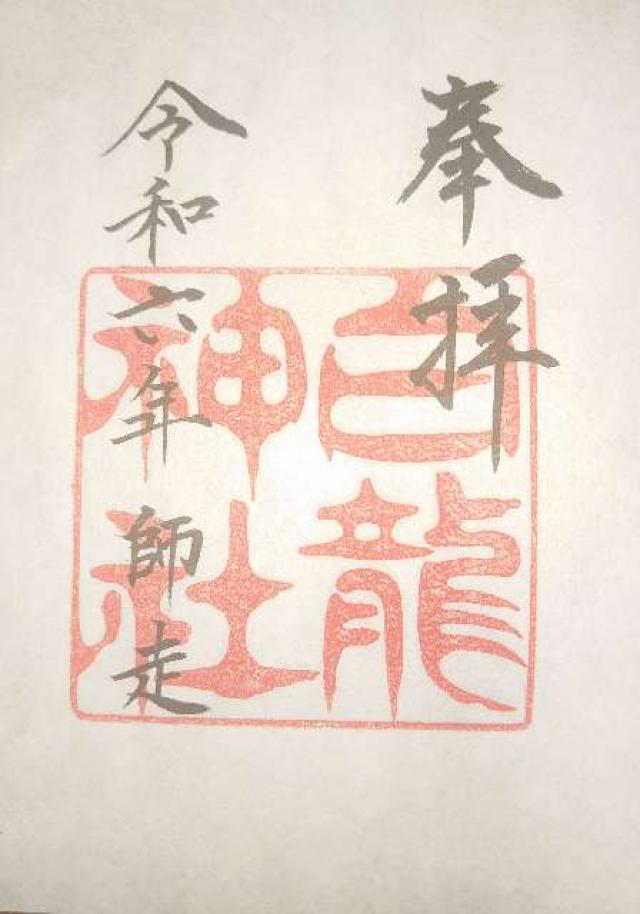 奉拝
白龍
神社
令和六年 師走